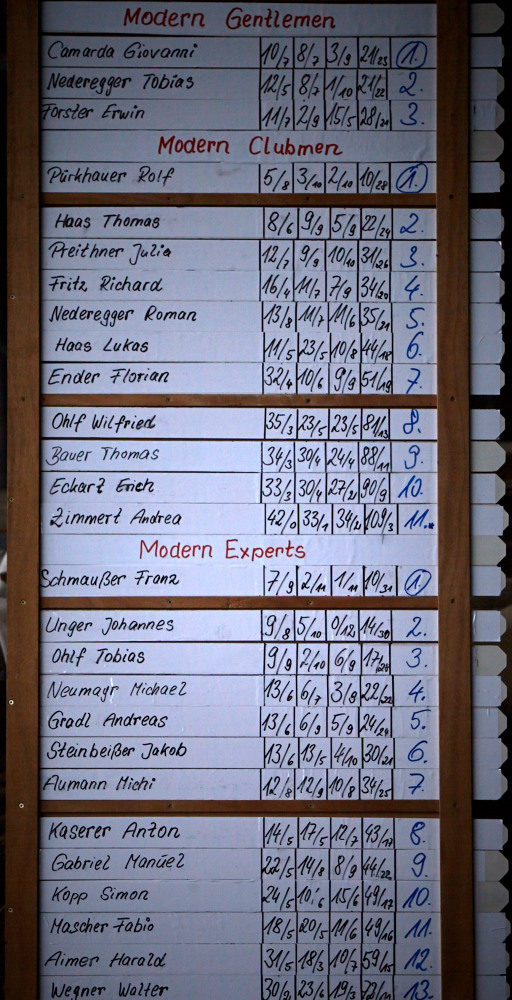 Modern Gentlemen
Camarda Giovanni 10/7 8/7 3/9 21/23 1.
Nederegger Tobias 12/5 8/7 1/10 21/22 2.
Forster Erwin 11/7 2/9 15/5 28/21 3.
Modern Clubmen
Pürkhauer Rolf 5/8 3/10 2/10 10/28 1.
Haas Thomas 8/6 9/9 5/9 22/24 2.
Preithner Julia 12/7 9/9 10/10 31/26 3.
Fritz Richard 16/4 11/7 7/9 34/20 4.
Nederegger Roman 13/8 11/7 11/6 35/21 5.
Haas Lukas 11/5 23/5 10/8 44/18 6.
Ender Florian 32/4 10/6 9/9 51/19 7.
Ohlf Wilfried 35/3 23/5 23/5 81/13 8.
Bauer Thomas 34/3 30/4 24/4 88/11 9.
Eckart Erich 33/3 30/4 27/2 90/9 10.
Zimmert Andrea 42/0 33/1 34/2 109/3 11.
Modern Experts
Schmaußer Franz 7/9 2/11 1/11 10/31 1
Unger Johannes 9/8 5/10 0/12 14/30 2.
Ohlf Tobias 9/9 2/10 6/9 17/28 3.
Neumayr Michael 13/6 6/7 3/9 22/22 4.
Gradl Andreas 13/6 6/9 5/9 24/24 5.
Steinbeißer Jakob 13/6 13/5 4/10 30/21 6.
Aumann Michi 12/8 12/9 10/8 34/25 7.
Kaserer Anton 14/5 17/5 12/7 43/17 8.
Gabriel Manuel 22/5 14/8 8/9 44/22 9.
Kopp Simon 24/5 10/6 15/6 49/17 10.
Mascher Fabio 18/5 20/5 11/6 49/16 11.
Aimer Harald 31/5 18/3 10/7 59/15 12.
Wegner Walter 30/2 23/6 19/3 72/11 13.